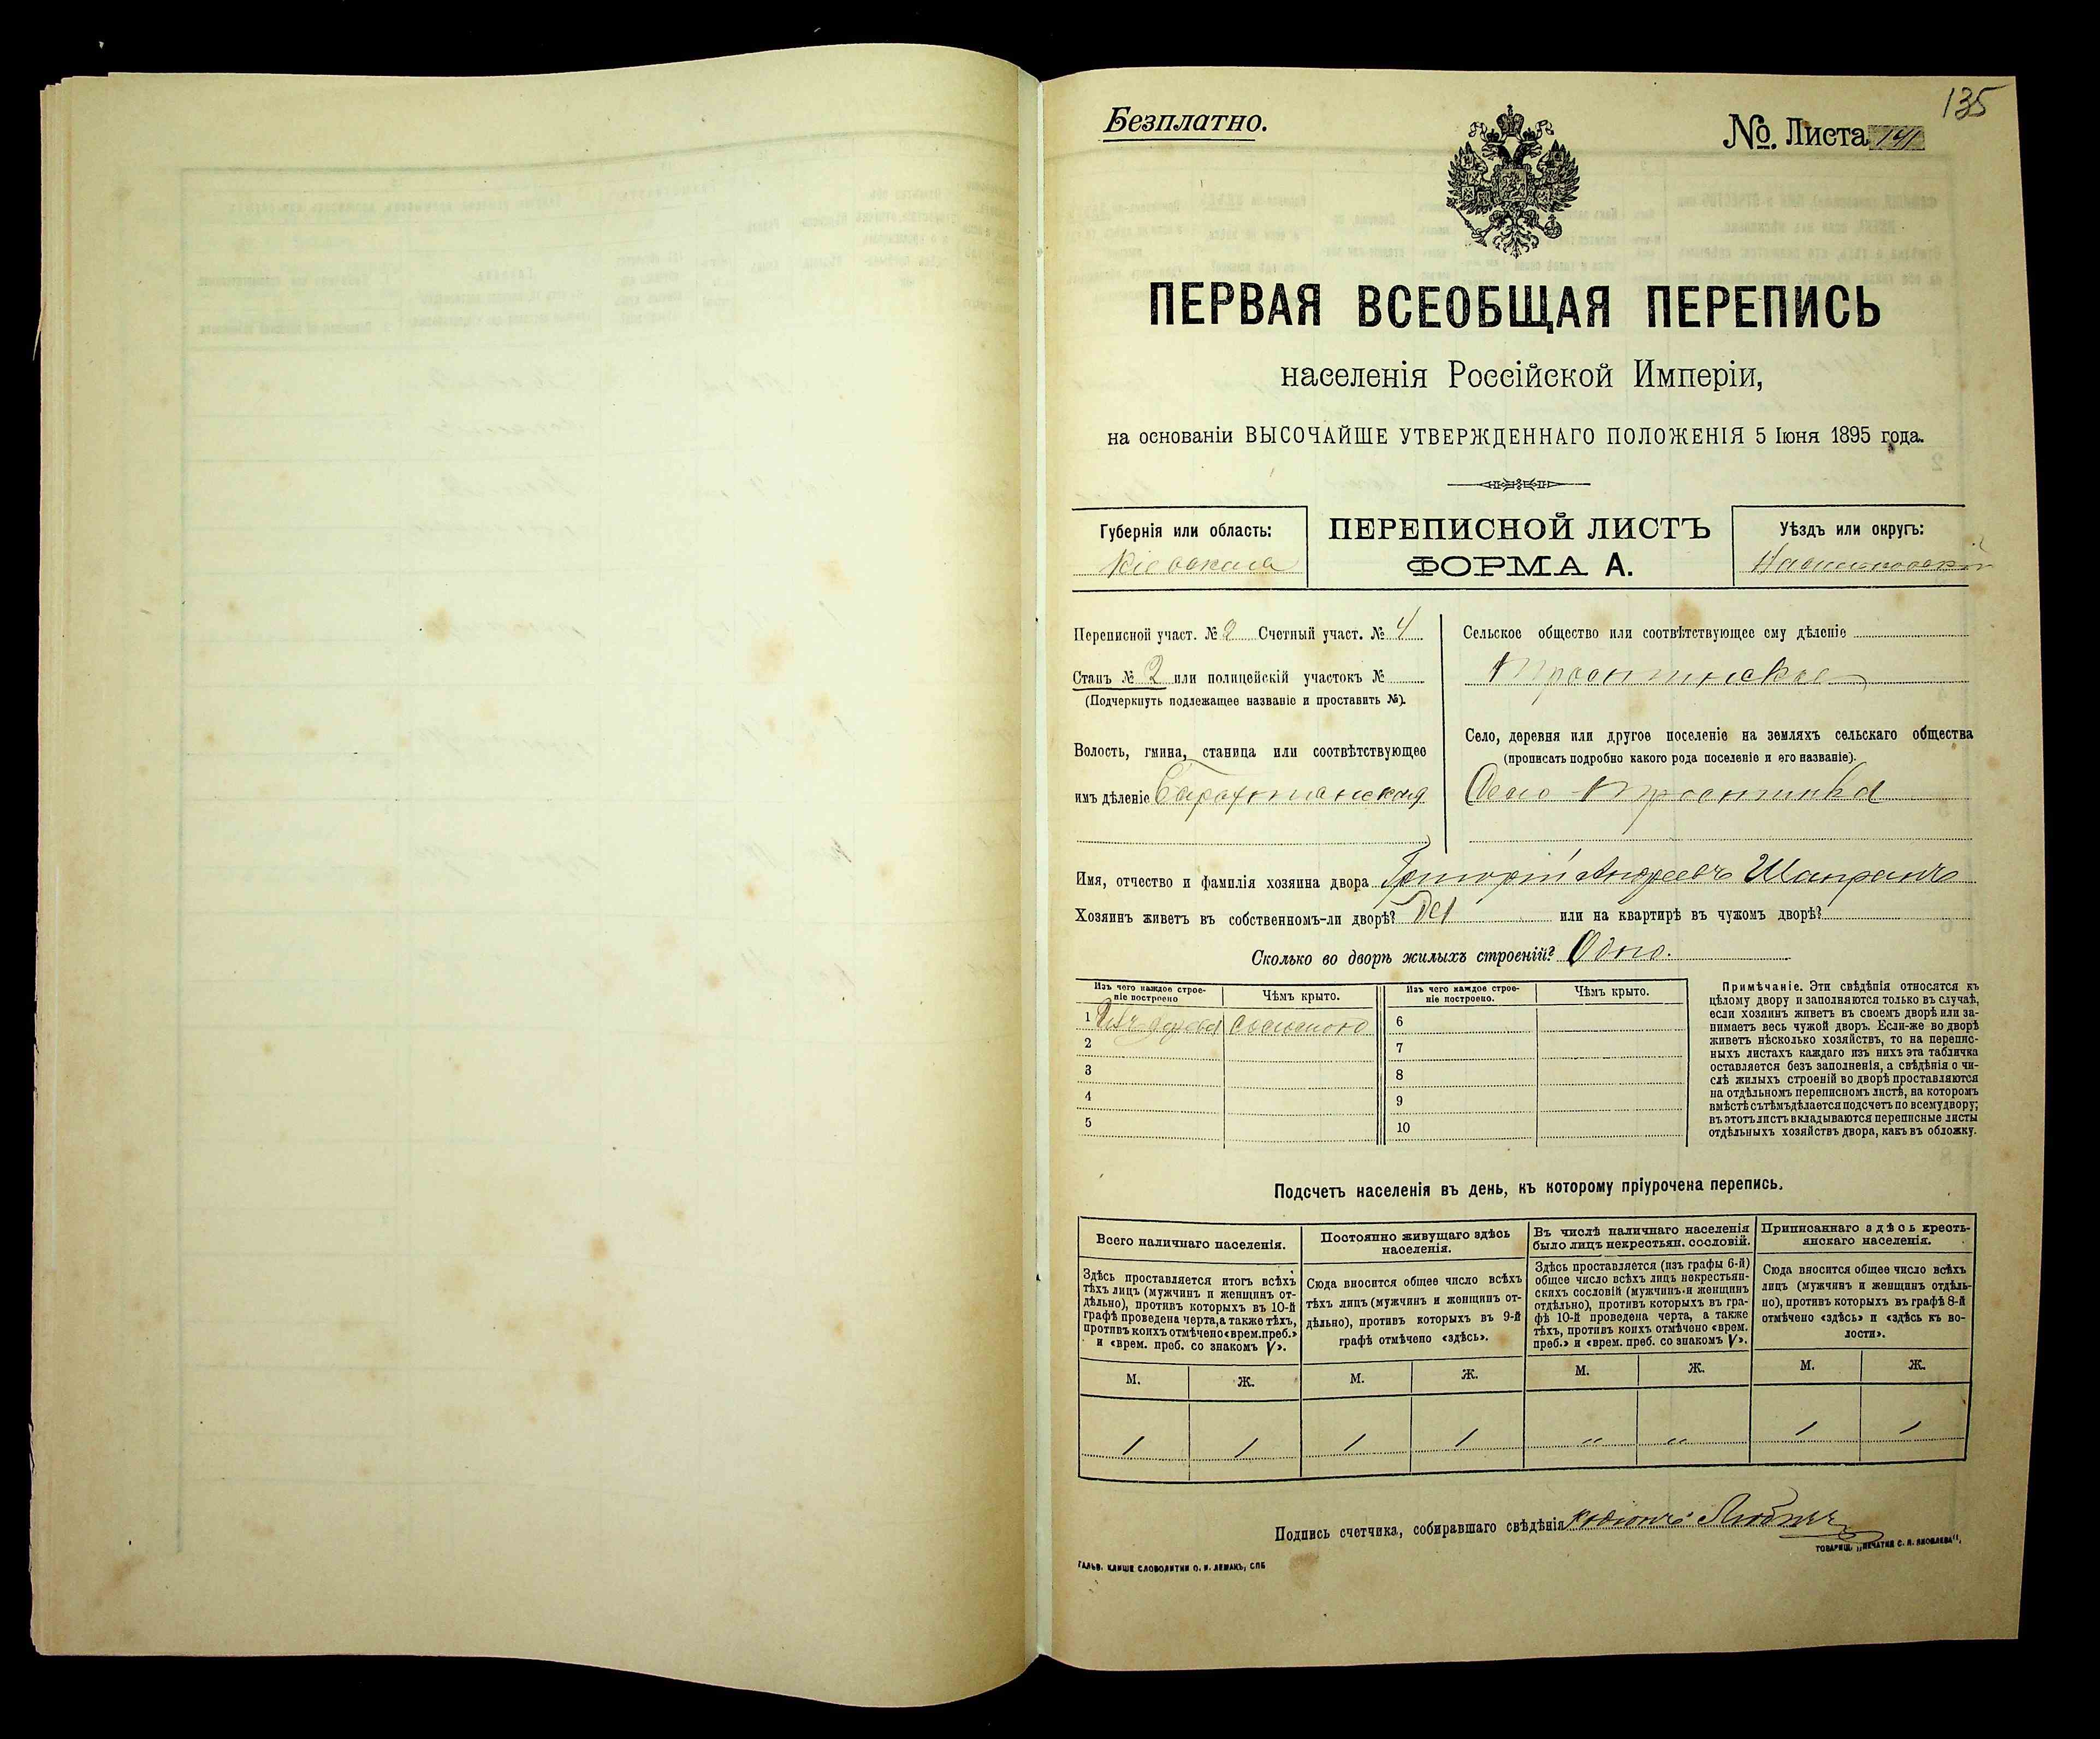 135
Безплатно.
№. Листа 141
ПЕРВАЯ ВСЕОБЩАЯ ПЕРЕПИСЬ
населенія Россійской Имперіи,
на основаніи ВЫСОЧАЙШЕ УТВЕРЖДЕННАГО ПОЛОЖЕНІЯ 5 Іюня 1895 года.
Губернія или область:
Кіевская
ПЕРЕПИСНОЙ ЛИСТЪ
ФОРМА А.
Уѣздъ или округъ:
Переписной участ. № 2 Счетный участ. № 4
Станъ № 2 или полицейскій участокъ №
(Подчеркнуть подлежащее названіе и проставить №).
Волость, гмина, станица или соотвѣтствующее
имъ дѣленіе Барахтянская
Сельское общество или соотвѣтствующее ему дѣленіе
Тростинское
Село, деревня или другое поселеніе на земляхъ сельскаго общества
(прописать подробно какого рода поселеніе и его названіе).
Село Тростинка
Имя, отчество и фамилія хозяина двора Григорій Андреевъ Шапранъ
Хозяинъ живетъ въ собственномъ-ли дворѣ? Да или на квартирѣ въ чужомъ дворѣ?
Сколько во дворѣ жилыхъ строеній? Одно.
Изъ чего каждое строе-
ніе построено
Чѣмъ крыто.
Изъ чего каждое строе-
ніе построено.
Чѣмъ крыто.
1 Изъ дерева соломою
2
3
4
5
6
7
8
9
10
Примѣчаніе. Эти свѣдѣнія относятся къ
цѣлому двору и заполняются только въ случаѣ,
если хозяинъ живетъ въ своемъ дворѣ или за-
нимаетъ весь чужой дворъ. Если-же во дворѣ
живетъ нѣсколько хозяйствъ, то на перепис-
ныхъ листахъ каждаго изъ нихъ эта табличка
оставляется безъ заполненія, а свѣдѣнія о чи-
слѣ жилыхъ строеній во дворѣ проставляются
на отдѣльномъ переписномъ листѣ, на которомъ
вмѣстѣ съ тѣмъ дѣлается подсчетъ по всему двору;
въ этотъ листъ вкладываются переписные листы
отдѣльныхъ хозяйствъ двора, какъ въ обложку.
Подсчетъ населенія въ день, къ которому пріурочена перепись.
Всего наличнаго населенія.
Здѣсь проставляется итогъ всѣхъ
тѣхъ лицъ (мужчинъ и женщинъ от-
дѣльно), противъ которыхъ въ 10-й
графѣ проведена черта, а также тѣхъ,
противъ коихъ отмѣчено «врем. преб.»
и «врем. преб. со знакомъ V».
Постоянно живущаго здѣсь
населенія.
Сюда вносится общее число всѣхъ
тѣхъ лицъ (мужчинъ и женщинъ от-
дѣльно), противъ которыхъ въ 9-й
графѣ отмѣчено «здѣсь».
Въ числѣ наличнаго населенія
было лицъ некрестьян. сословій.
Здѣсь проставляется (изъ графы 6-й)
общее число всѣхъ лицъ некрестьян-
скихъ сословій (мужчинъ и женщинъ
отдѣльно), противъ которыхъ въ гра-
фѣ 10-й проведена черта, а также
тѣхъ, противъ коихъ отмѣчено «врем.
преб.» и «врем. преб. со знакомъ V».
Приписаннаго здѣсь кресть-
янскаго населенія.
Сюда вносится общее число всѣхъ
лицъ (мужчинъ и женщинъ отдѣль-
но), противъ которыхъ въ графѣ 8-й
отмѣчено «здѣсь» и «здѣсь къ во-
лости».
М. Ж. М. Ж. М. Ж. М. Ж.
1 1 1 1 " " 1 1
Подпись счетчика, собиравшаго свѣдѣнія Родіонъ
ГАЛЬВ. КЛИШЕ СЛОВОЛИТНИ О. И. ЛЕМАНЪ, СПБ
ТОВАРИЩ. „ПЕЧАТНЯ С. П. ЯКОВЛЕВА",